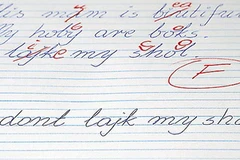 is mam is bjutifu
y hoby are boks.
lajke my shol
F
dont lajk my sho